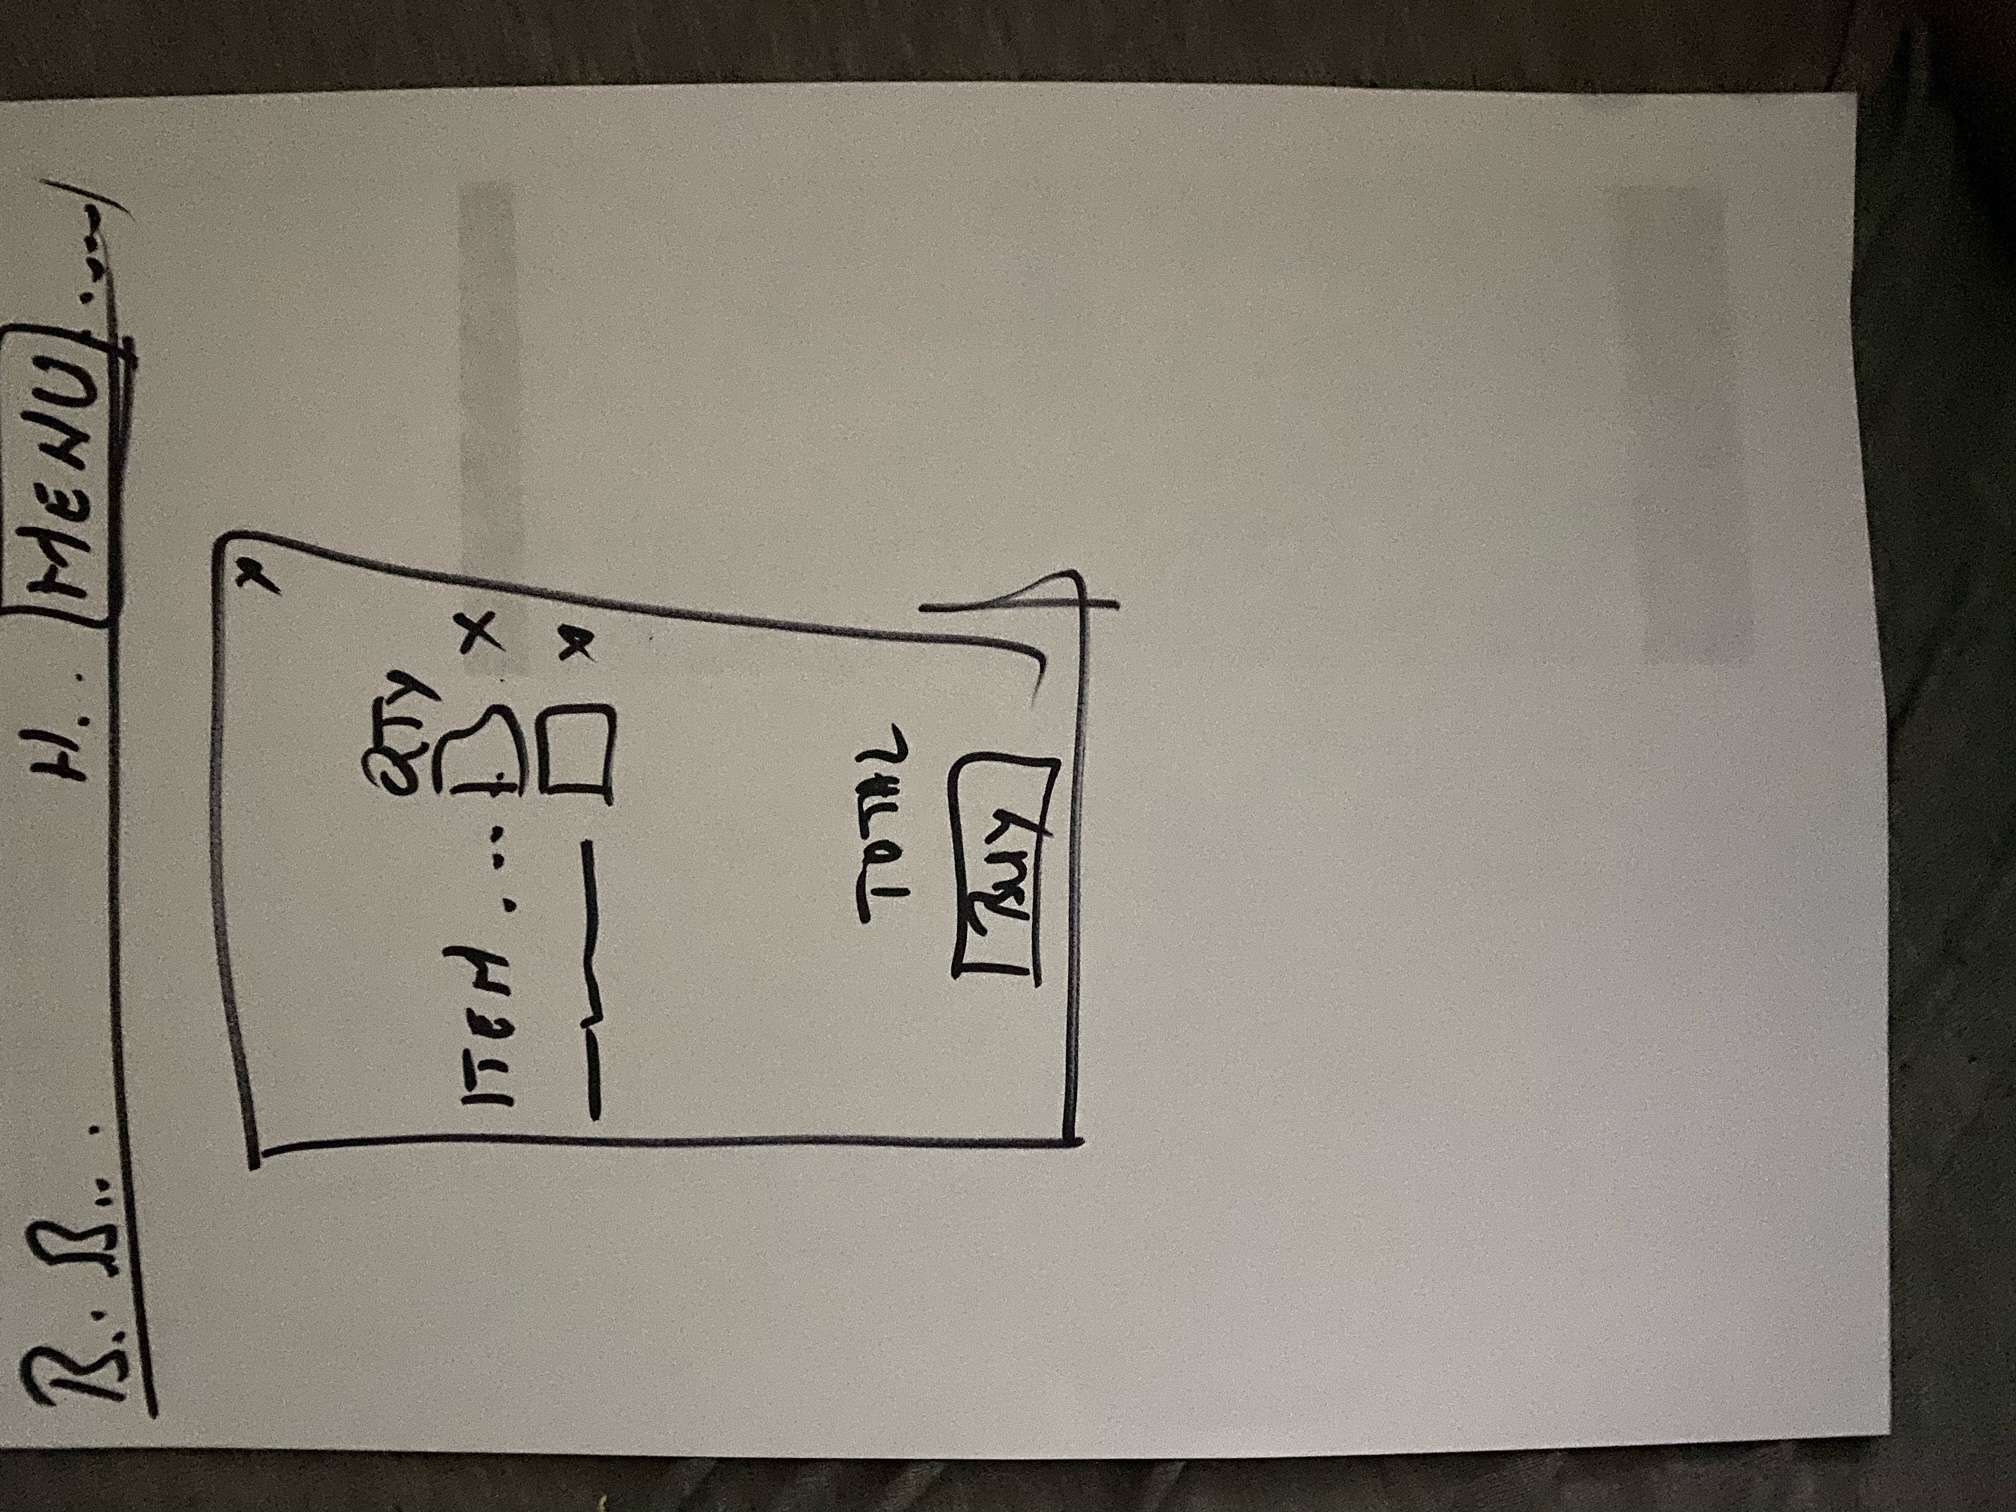 B.. B...
H.. MENU .....
x
QTY
ITEM .... x
x
TOTAL
BUY